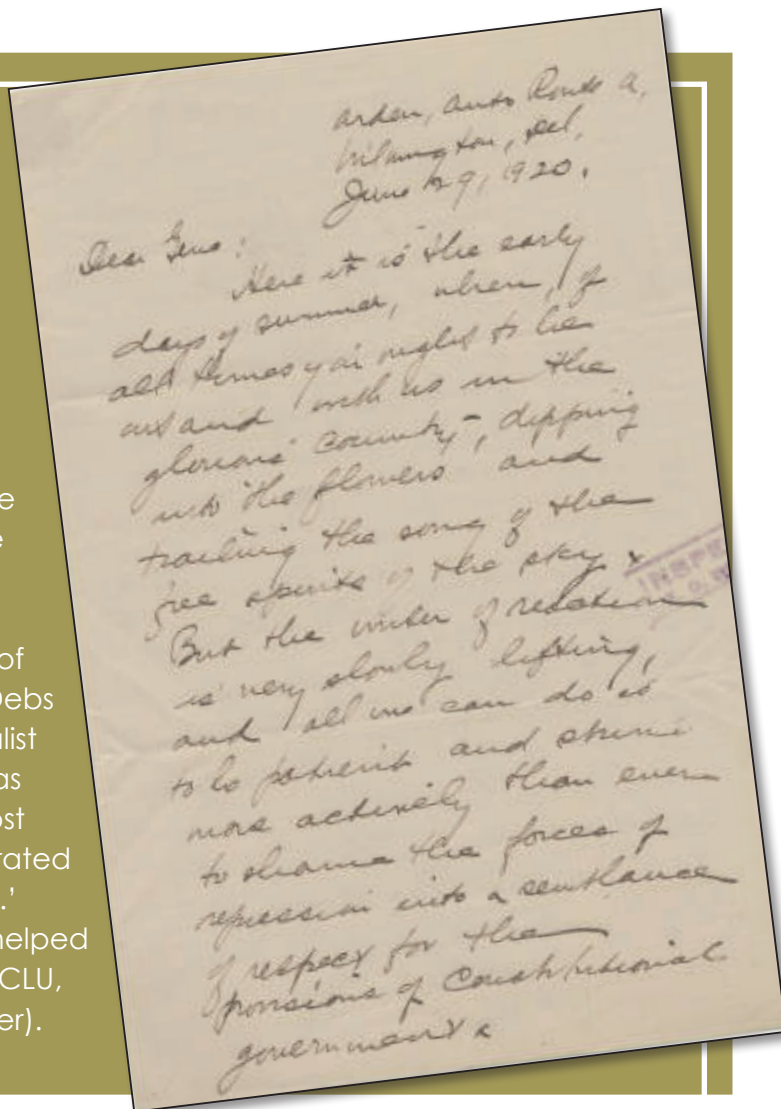 e
e
of
Debs
list
as
ost
rated
.'
helped
CLU,
er).
Arden, Auto Route A,
Wilmington, Del,
June 29, 1920.
Dear Gene:
Here it is the early
days of summer, when, of
all times you ought to be
out and with us in the
glorious country, dipping
into the flowers and
trailing the song of the
free spirits of the sky.
But the winter of reaction
is very slowly lifting,
and all we can do is
to be patient and strive
more actively than ever
to shame the forces of
repression into a semblance
of respect for the
provisions of Constitutional
government.
INSPE